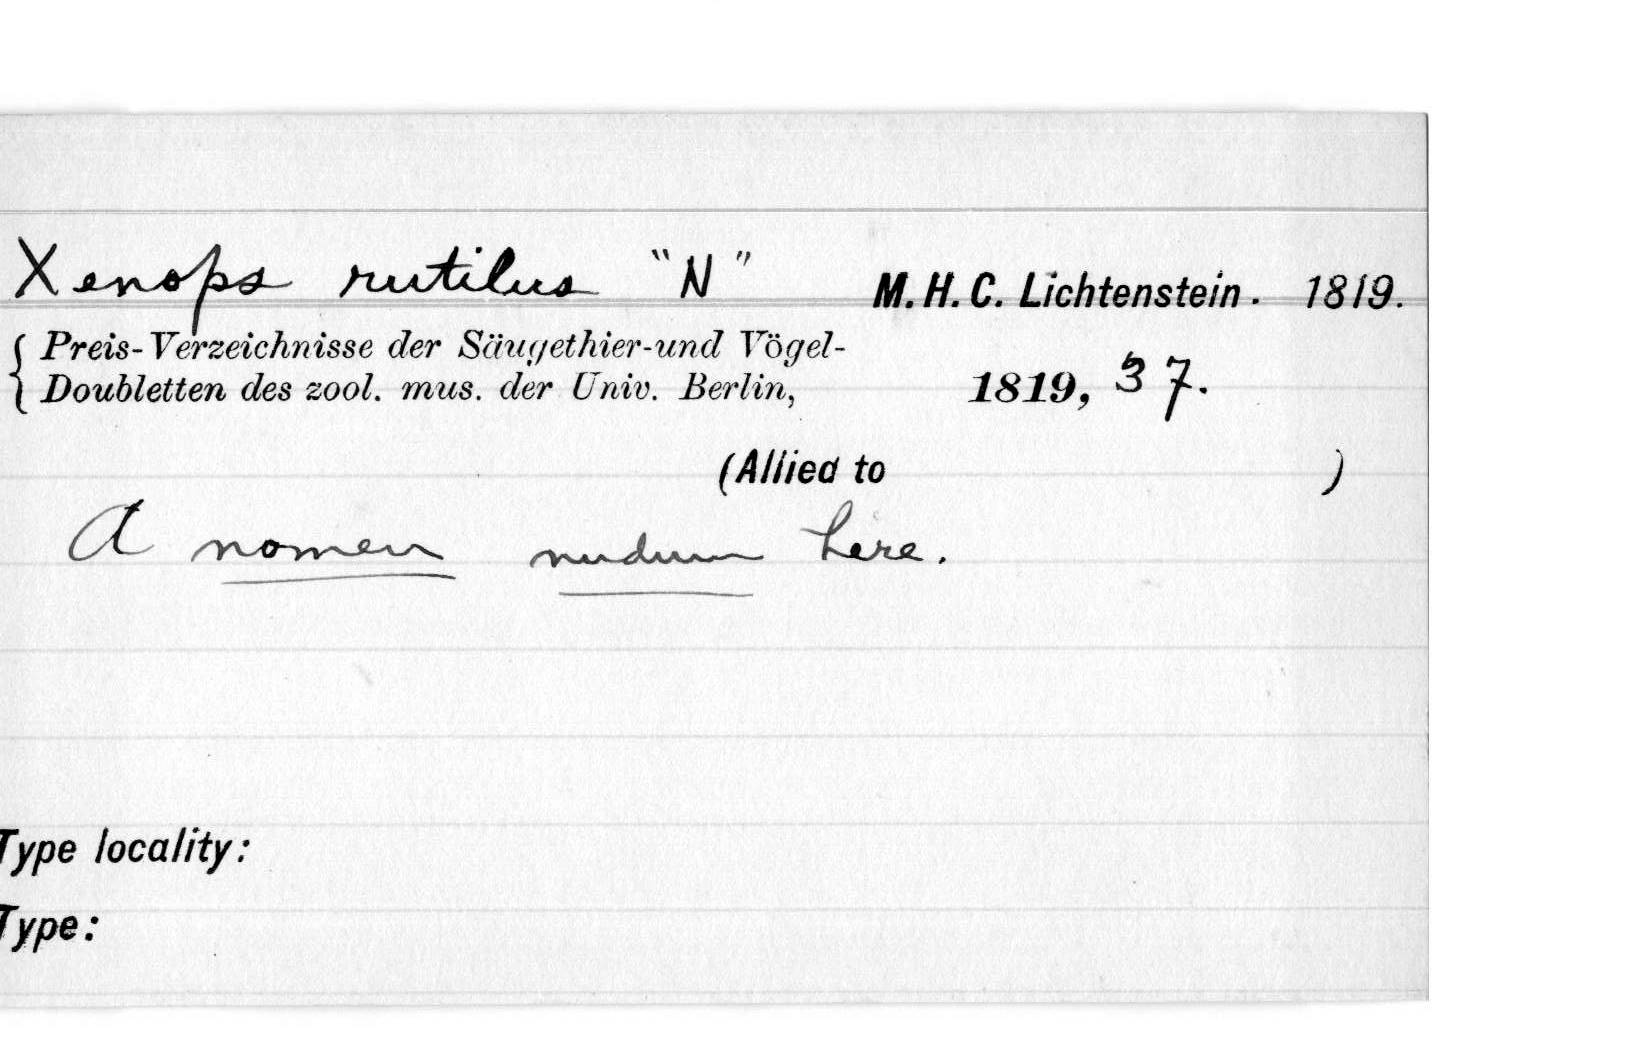 Xenops rutilus "N" M. H. C. Lichtenstein. 1819.
Preis-Verzeichnisse der Säugethier-und Vögel-
Doubletten des zool. mus. der Univ. Berlin, 1819, 37.
(Allied to )
A nomen nudum here.
Type locality:
Type: